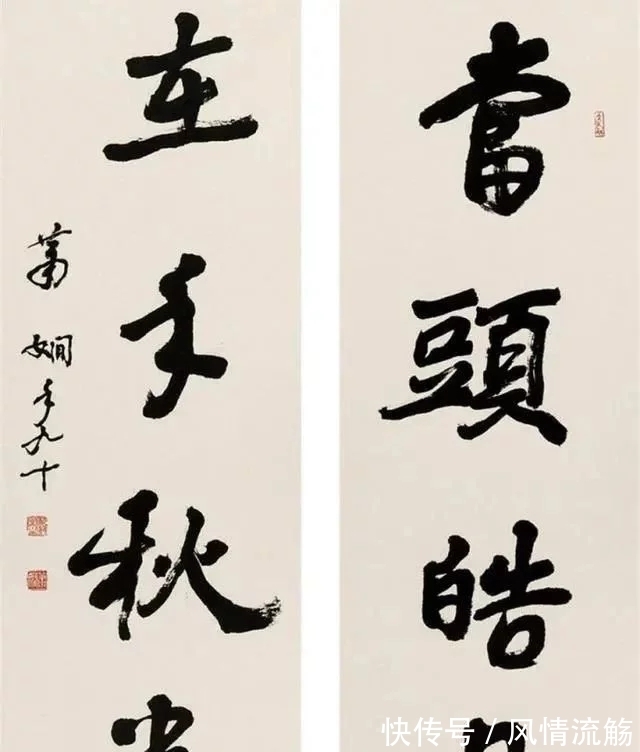 當頭皓
在手秋
蕭嫺年九十
快传号 / 风情流觞